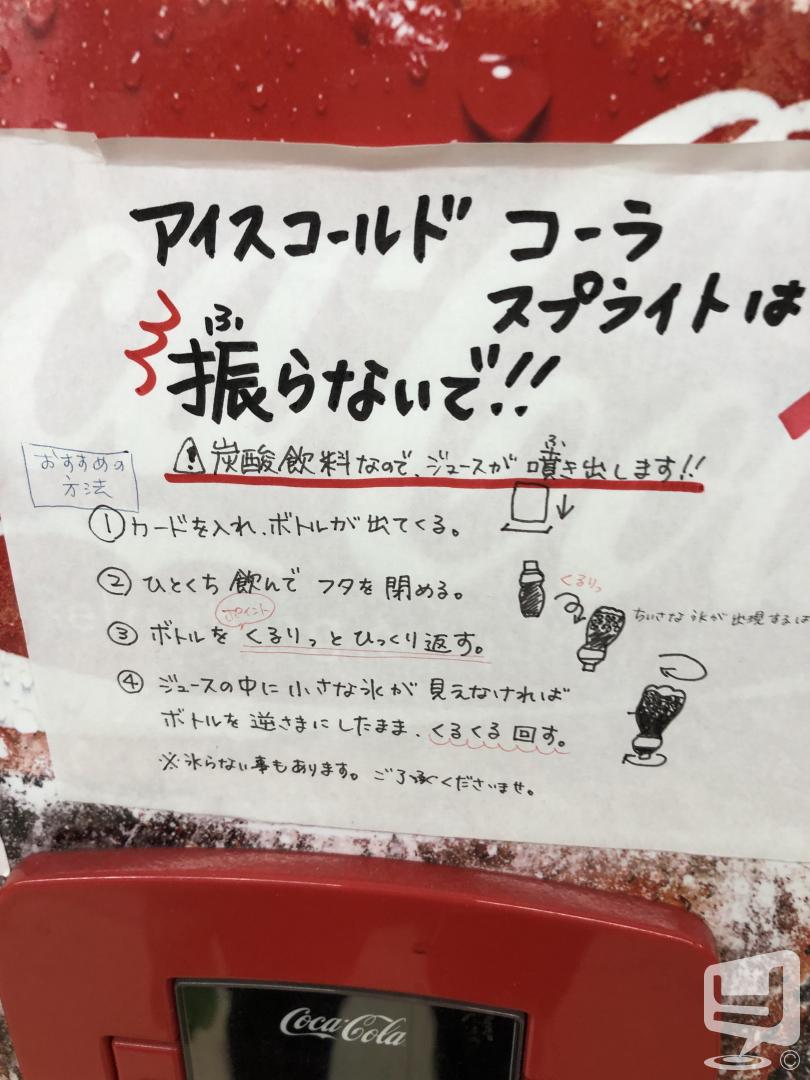 アイスコールド コーラ
スプライトは
ふ
振らないで!!
おすすめの
方法
ふ
炭酸飲料なので、ジュースが噴き出します!!
①カードを入れ、ボトルが出てくる。
②ひとくち飲んで フタを閉める。
くるりっ
ポイント
③ボトルをくるりっとひっくり返す。
ちいさな氷が出現するは
④ジュースの中に小さな氷が見えなければ
ボトルを逆さまにしたまま、くるくる回す。
※氷らない事もあります。ご了承くださいませ。
Coca-Cola
©